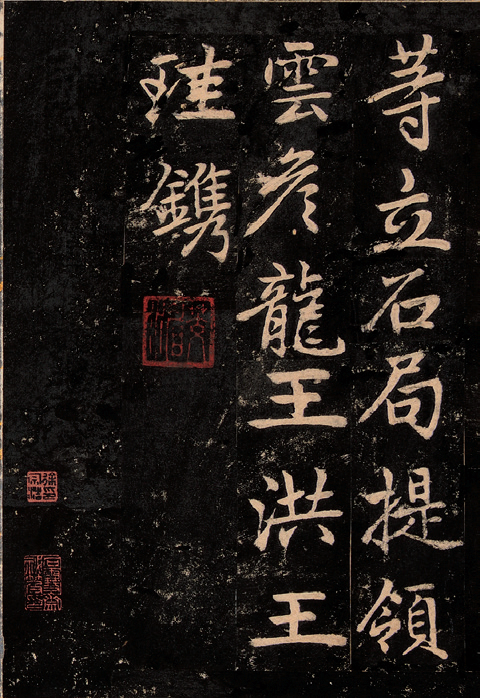 等立石局提領
雲彦龍王洪王
珪鐫